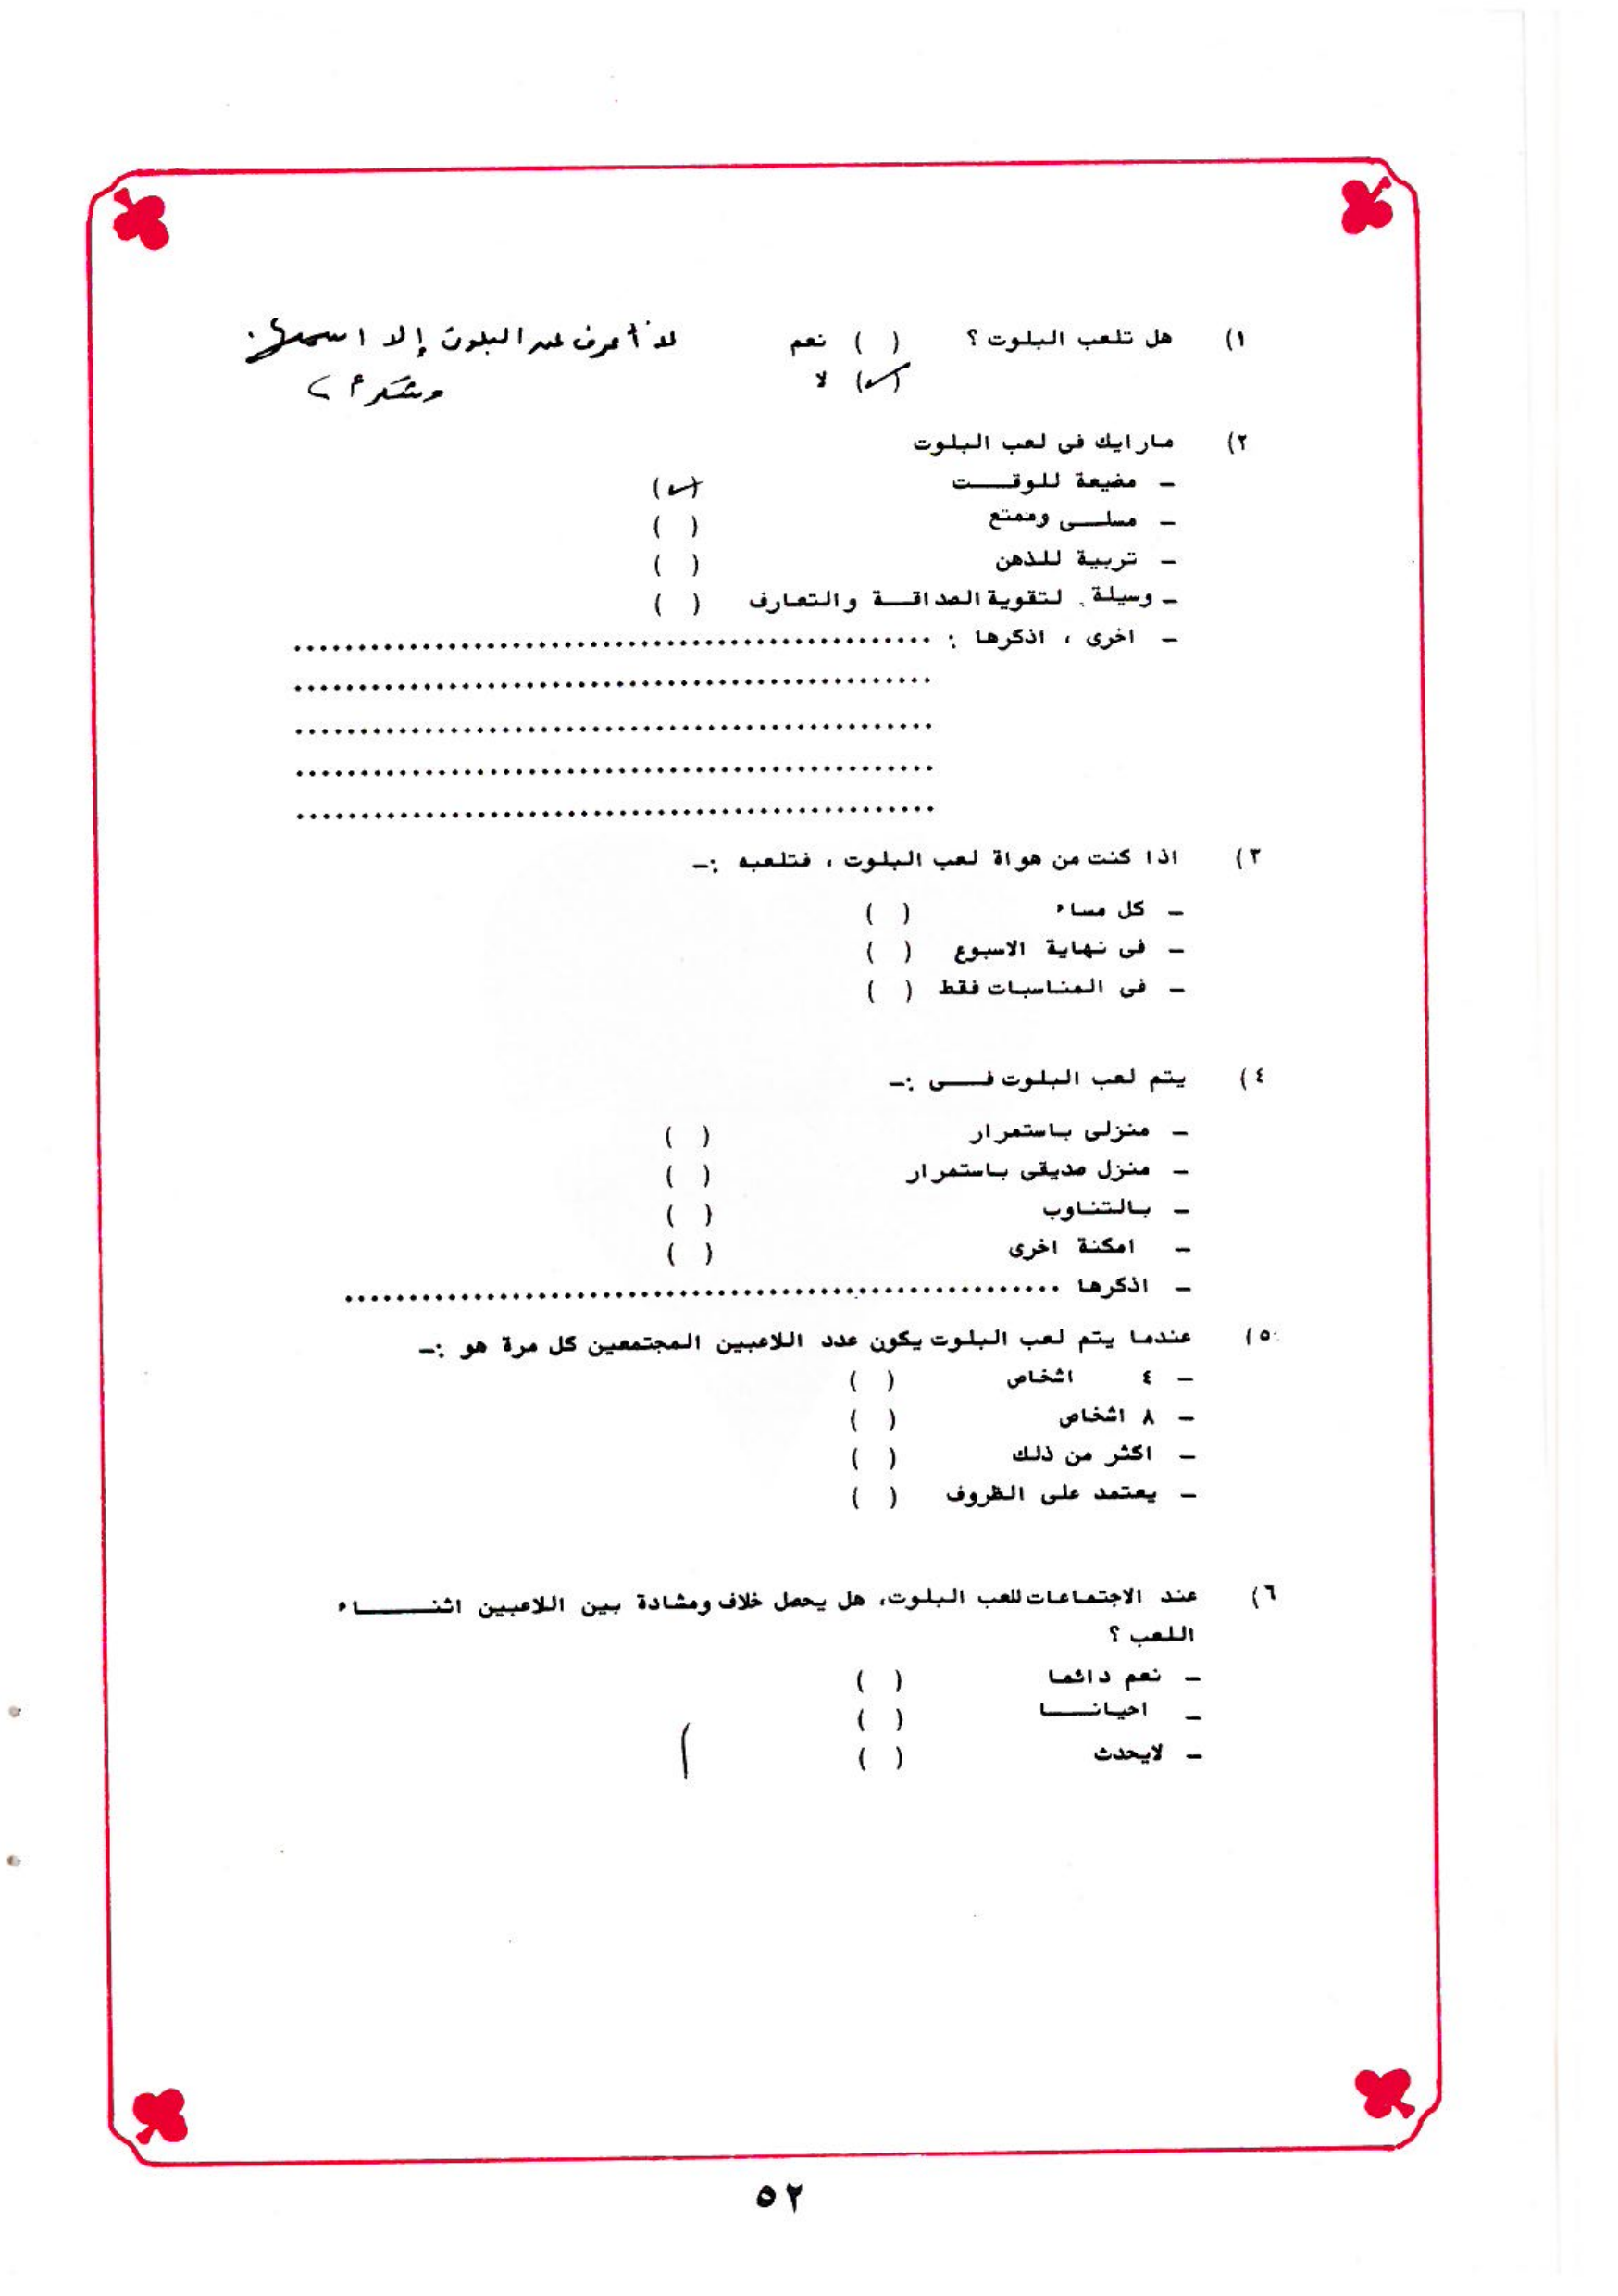 ١) هل تلعب البلوت ؟ ( ) نعم لا أعرف عن البلوت إلا اسمها.
(✓) لا وشكراً
٢) مارايك فى لعب البلوت
- مضيعة للوقـــت (✓)
- مسلــى وممتع ( )
- تربية للذهن ( )
- وسيلة لتقوية الصداقــة والتعارف ( )
- اخرى ، اذكرها : ..................................................
..................................................
..................................................
..................................................
..................................................
٣) اذا كنت من هواة لعب البلوت ، فتلعبه :-
- كل مساء ( )
- فى نهاية الاسبوع ( )
- فى المناسبات فقط ( )
٤) يتم لعب البلوت فـــى :-
- منزلى باستمرار ( )
- منزل صديقى باستمرار ( )
- بالتناوب ( )
- امكنة اخرى ( )
- اذكرها ..................................................
٥) عندما يتم لعب البلوت يكون عدد اللاعبين المجتمعين كل مرة هو :-
- ٤ اشخاص ( )
- ٨ اشخاص ( )
- اكثر من ذلك ( )
- يعتمد على الظروف ( )
٦) عند الاجتماعات للعب البلوت، هل يحصل خلاف ومشادة بين اللاعبين اثنـــــاء
اللعب ؟
- نعم دائما ( )
- احيانـــا ( )
- لايحدث ( )
٥٢